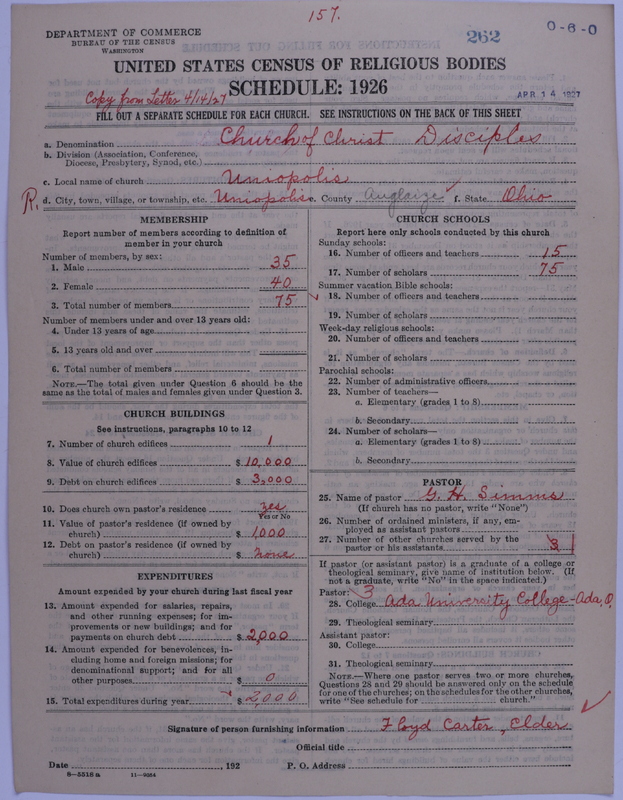 157.
DEPARTMENT OF COMMERCE
BUREAU OF THE CENSUS
WASHINGTON
262
0-6-0
UNITED STATES CENSUS OF RELIGIOUS BODIES
SCHEDULE: 1926
Copy from Letter 4/14/27
APR 14 1927
FILL OUT A SEPARATE SCHEDULE FOR EACH CHURCH. SEE INSTRUCTIONS ON THE BACK OF THIS SHEET
a. Denomination Church of Christ Disciples
b. Division (Association, Conference,
Diocese, Presbytery, Synod, etc.)
c. Local name of church Uniopolis
R. d. City, town, village, or township, etc. Uniopolis e. County Auglaize f. State Ohio
MEMBERSHIP
Report number of members according to definition of
member in your church
Number of members, by sex:
1. Male 35
2. Female 40
3. Total number of members 75
Number of members under and over 13 years old:
4. Under 13 years of age
5. 13 years old and over
6. Total number of members
NOTE.—The total given under Question 6 should be the
same as the total of males and females given under Question 3.
CHURCH BUILDINGS
See instructions, paragraphs 10 to 12
7. Number of church edifices 1
8. Value of church edifices $ 10,000
9. Debt on church edifices $ 3,000
10. Does church own pastor's residence yes
Yes or No
11. Value of pastor's residence (if owned by
church) $ 1,000
12. Debt on pastor's residence (if owned by
church) $ none
EXPENDITURES
Amount expended by your church during last fiscal year
13. Amount expended for salaries, repairs,
and other running expenses; for im-
provements or new buildings; and for
payments on church debt $ 2,000
14. Amount expended for benevolences, in-
cluding home and foreign missions; for
denominational support; and for all
other purposes $ 0
15. Total expenditures during year $ 2,000
CHURCH SCHOOLS
Report here only schools conducted by this church
Sunday schools:
16. Number of officers and teachers 15
17. Number of scholars 75
Summer vacation Bible schools:
18. Number of officers and teachers
19. Number of scholars
Week-day religious schools:
20. Number of officers and teachers
21. Number of scholars
Parochial schools:
22. Number of administrative officers
23. Number of teachers—
a. Elementary (grades 1 to 8)
b. Secondary
24. Number of scholars—
a. Elementary (grades 1 to 8)
b. Secondary
PASTOR
25. Name of pastor G. H. Simms
(If church has no pastor, write "None")
26. Number of ordained ministers, if any, em-
ployed as assistant pastors
27. Number of other churches served by the
pastor or his assistants 3 1
If pastor (or assistant pastor) is a graduate of a college or
theological seminary, give name of institution below. (If
not a graduate, write "No" in the space indicated.)
Pastor: 3
28. College Ada University College - Ada, O.
29. Theological seminary
Assistant pastor:
30. College
31. Theological seminary
NOTE.—Where one pastor serves two or more churches,
Questions 28 and 29 should be answered only on the schedule
for one of the churches; on the schedules for the other churches,
write "See schedule for church."
Signature of person furnishing information Floyd Carter, Elder
Official title
Date , 192 P. O. Address
8—5518 a 11—9084